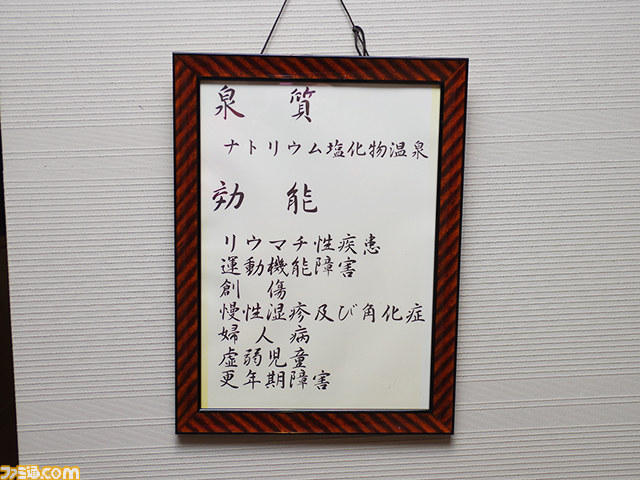 泉質
ナトリウム塩化物温泉
効能
リウマチ性疾患
運動機能障害
創傷
慢性湿疹及び角化症
婦人病
虚弱児童
更年期障害
ファミ通.com